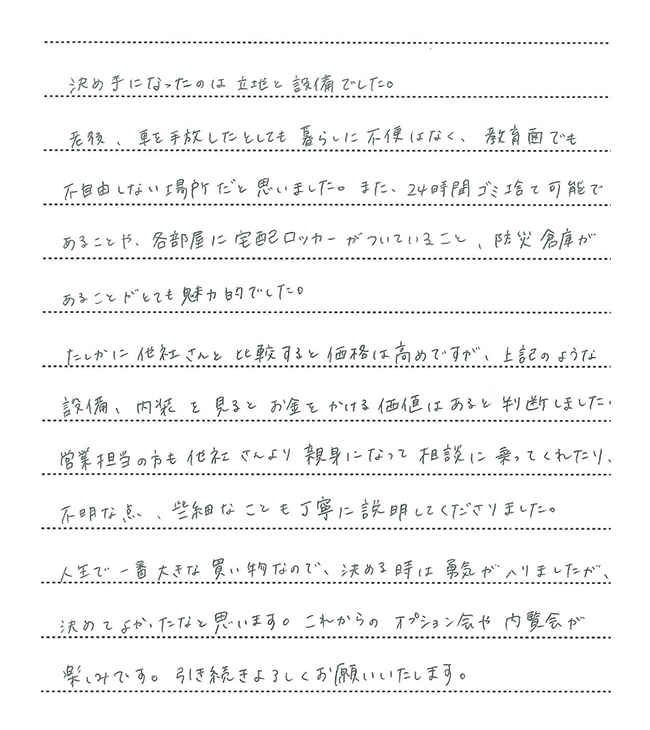 決め手になったのは立地と設備でした。
老後、車を手放したとしても暮らしに不便はなく、教育面でも
不自由しない場所だと思いました。また、24時間ゴミ捨て可能で
あることや、各部屋に宅配ロッカーがついていること、防災倉庫が
あることがとても魅力的でした。
たしかに他社さんと比較すると価格は高めですが、上記のような
設備、内装を見るとお金をかける価値はあると判断しました。
営業担当の方も他社さんより親身になって相談に乗ってくれたり、
不明な点、些細なことも丁寧に説明してくださりました。
人生で一番大きな買い物なので、決める時は勇気が入りましたが、
決めてよかったなと思います。これからのオプション会や内覧会が
楽しみです。引き続きよろしくお願いいたします。